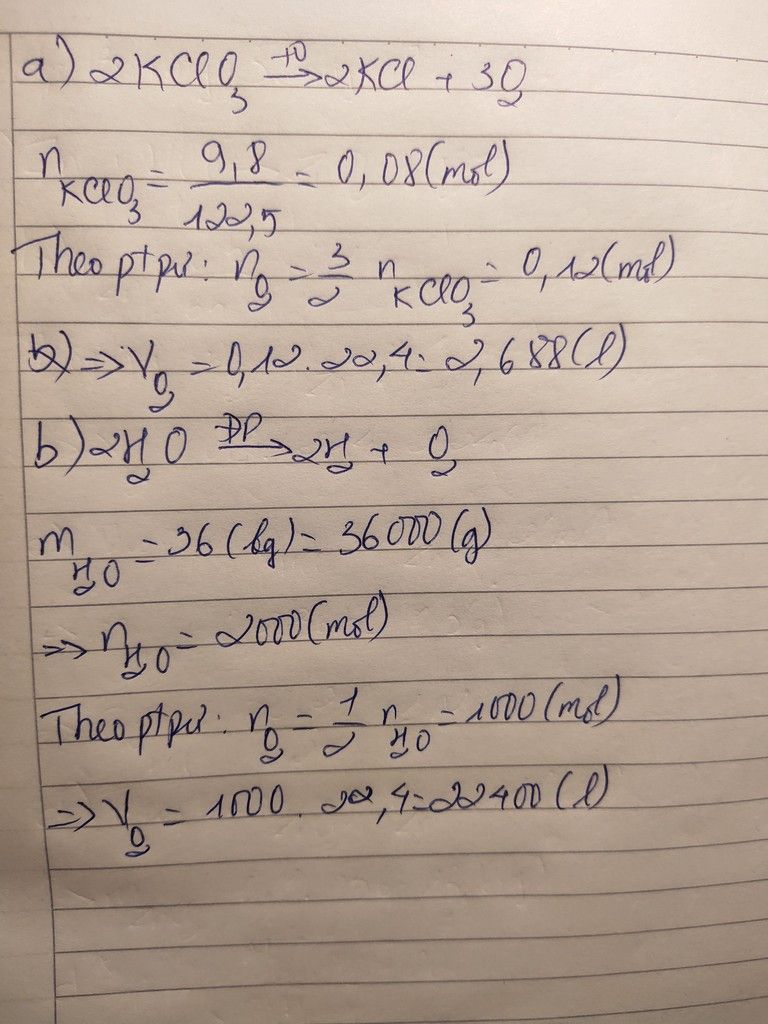 a) 2KClO₃ →(t⁰) 2KCl + 3O₂
n_KClO₃ = 9,8/122,5 = 0,08(mol)
Theo ptpư: n_O₂ = 3/2 n_KClO₃ = 0,12(mol)
⇒ V_O₂ = 0,12 . 22,4 = 2,688(l)
b) 2H₂O →(ĐP) 2H₂ + O₂
m_H₂O = 36(kg) = 36000(g)
⇒ n_H₂O = 2000(mol)
Theo ptpư: n_O₂ = 1/2 n_H₂O = 1000(mol)
⇒ V_O₂ = 1000 . 22,4 = 22400(l)